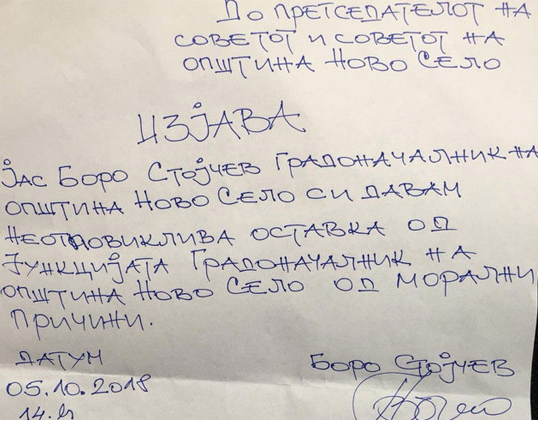 До претседателот на
советот и советот на
општина Ново Село
Изјава
Јас Боро Стојчев Градоначалник на
општина Ново Село си давам
неотповиклива оставка од
функцијата Градоначалник на
општина Ново Село од морални
причини.
Датум
05.10.2018
14.h
Боро Стојчев